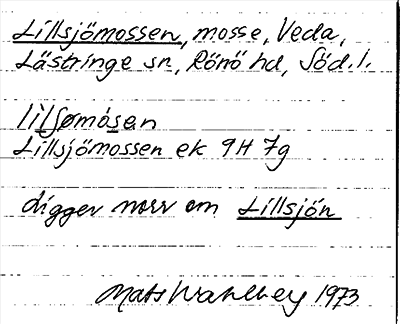 Lillsjömossen, mosse, Veda,
Lästringe sn, Rönö hd, Söd. l.
lilsømósen
Lillsjömossen ek 9H 7g
ligger norr om Lillsjön
Mats Wahlberg 1973